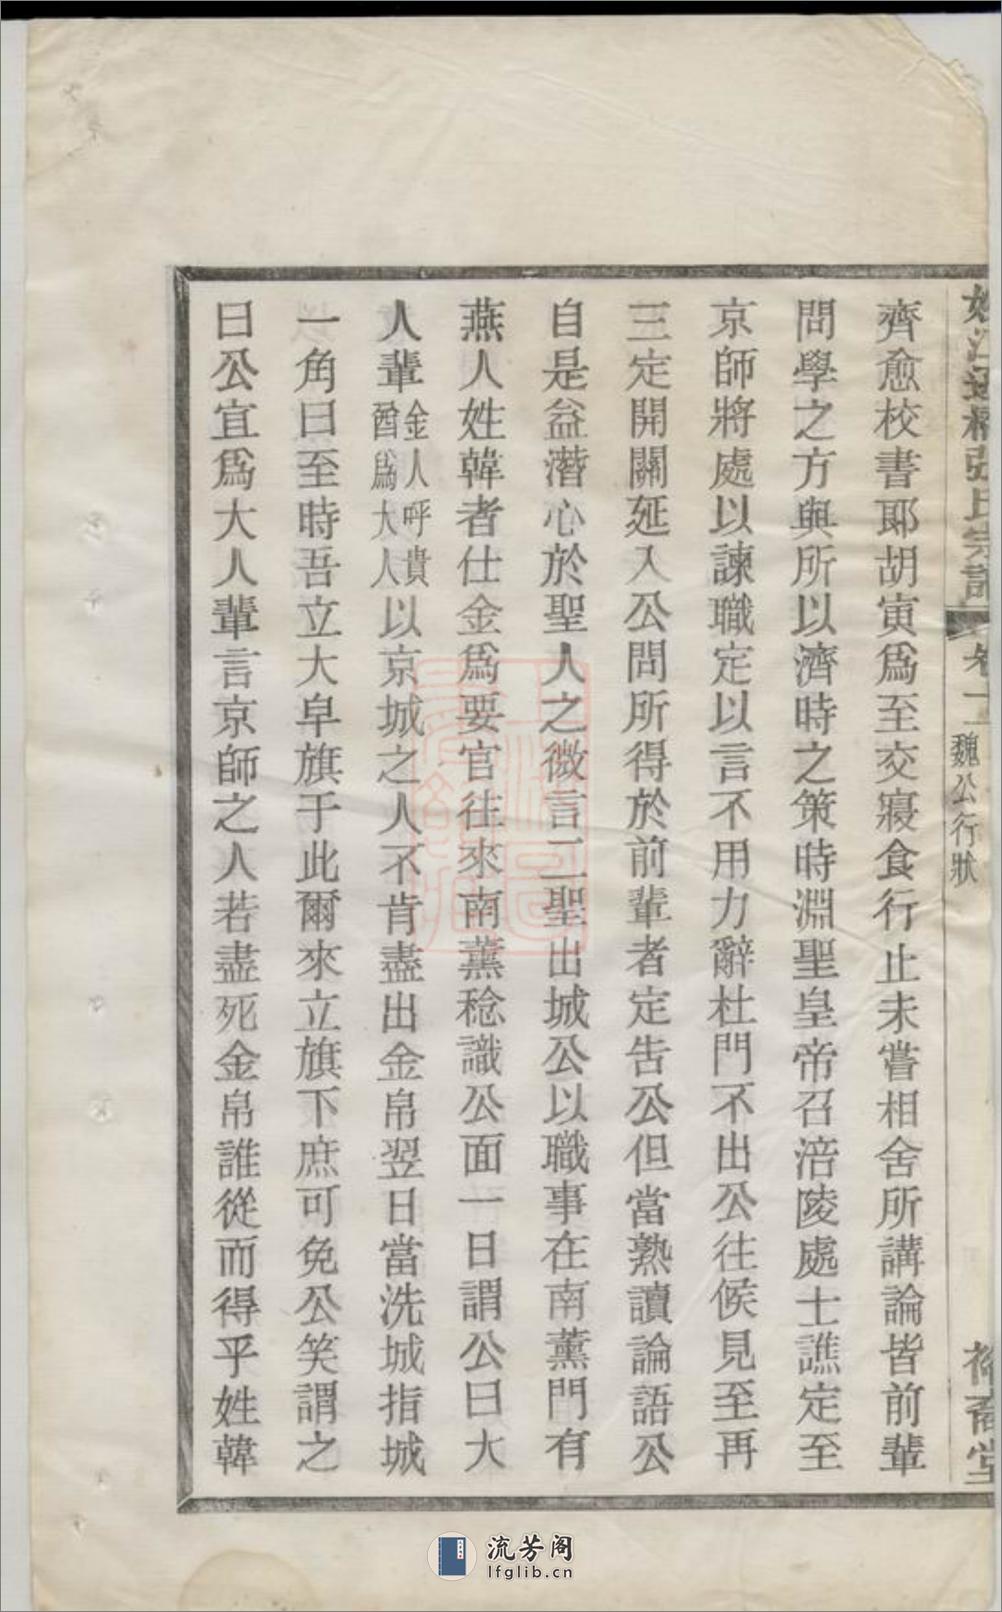 姚江通橋張氏宗譜 卷一 魏公行狀 裕齋堂
齊愈校書耶胡寅爲至交寢食行止未嘗相舍所講論皆前輩
問學之方與所以濟時之策時淵聖皇帝召涪陵處士譙定至
京師將處以諫職定以言不用力辭杜門不出公往候見至再
三定開關延入公問所得於前輩者定告公但當熟讀論語公
自是益潛心於聖人之微言二聖出城公以職事在南薰門有
燕人姓韓者仕金爲要官往來南薰稔識公面一日謂公曰大
人輩金人呼貴酋爲大人以京城之人不肯盡出金帛翌日當洗城指城
一角曰至時吾立大皁旗于此爾來立旗下庶可免公笑謂之
曰公宜爲大人輩言京師之人若盡死金帛誰從而得乎姓韓
流芳阁
lfglib.cn